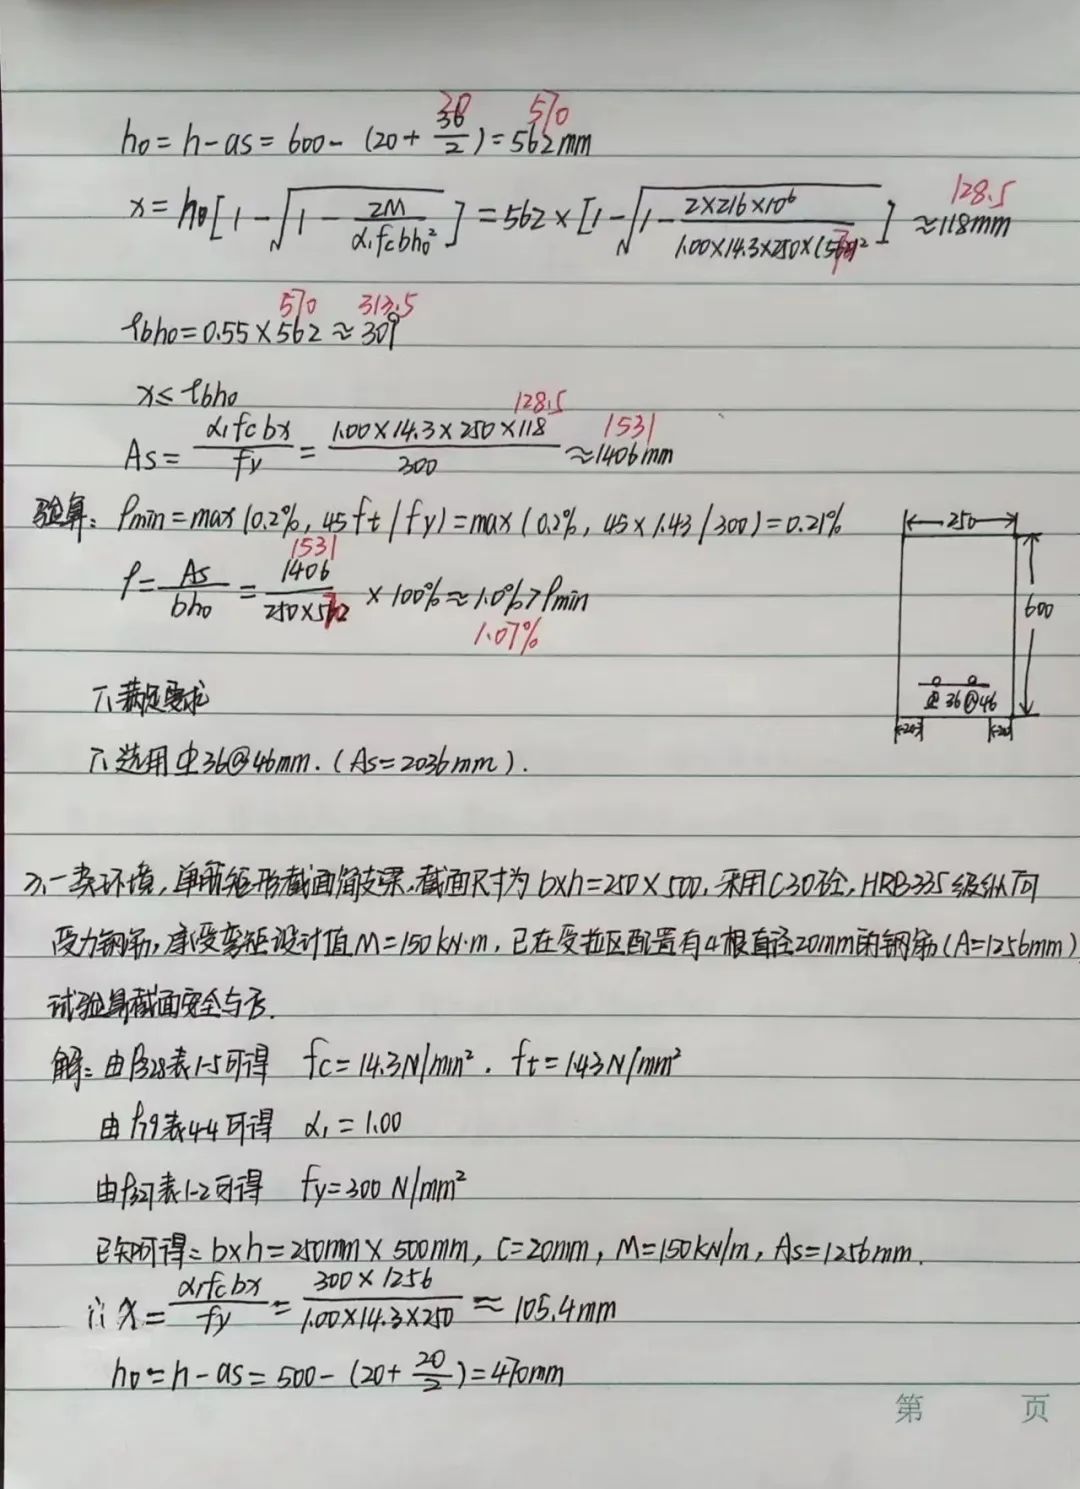 20 570
h₀=h-as=600-(20+36/2)=562mm
128.5
x=h₀[1-√(1-2M/α₁fcbh₀²)]=562×[1-√(1-2×216×10⁶/1.00×14.3×250×(562)²)]≈118mm
570 313.5
ξbh₀=0.55×562≈309
x≤ξbh₀
128.5 1531
As=α₁fcbx/fy=1.00×14.3×250×118/300≈1406mm
验算：ρmin=max(0.2%,45ft/fy)=max(0.2%,45×1.43/300)=0.21%
1531
ρ=As/bh₀=1406/250×562×100%≈1.0%>ρmin
1.07%
250
600
36@46
20 20
∴满足要求
∴选用⏀36@46mm.(As=2036mm).
一类环境,单筋矩形截面简支梁,截面尺寸为b×h=250×500,采用C30砼,HRB335级纵向
受力钢筋,承受弯矩设计值M=150kN·m,已在受拉区配置有4根直径20mm的钢筋(A=1256mm)
试验算截面安全与否.
解:由P328表1-5可得 fc=14.3N/mm². ft=1.43N/mm²
由P79表4-4可得 α₁=1.00
由P327表1-2可得 fy=300N/mm²
已知可得:b×h=250mm×500mm,C=20mm,M=150kN/m,As=1256mm.
∴x=α₁fcbx/fy=300×1256/1.00×14.3×250≈105.4mm
h₀=h-as=500-(20+20/2)=470mm
第 页